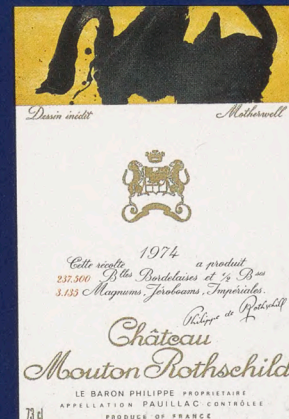 Dessin inédit Motherwell
1974
Cette récolte a produit
237.500 Blles Bordelaises et ½ Bses
3.135 Magnums, Jéroboams, Impériales.
Philippe de Rothschild
Château
Mouton Rothschild
LE BARON PHILIPPE PROPRIÉTAIRE
APPELLATION PAUILLAC CONTRÔLÉE
73 cl PRODUCE OF FRANCE